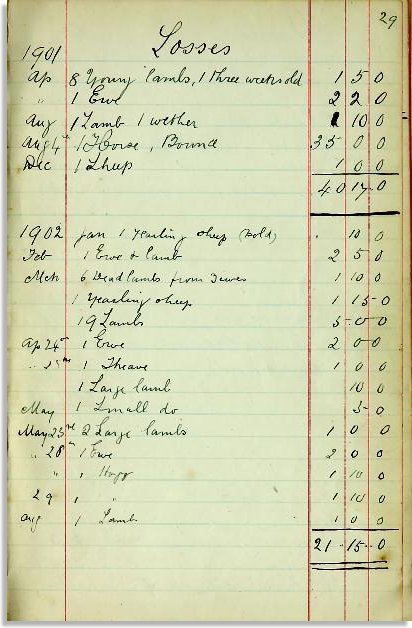 29
1901 Losses
Ap 8 Young lambs, 1 three weeks old 1 5 0
" 1 Ewe 2 2 0
Aug 1 Lamb 1 wether 1 10 0
Aug 4th 1 Horse, Bound 35 0 0
Dec 1 Sheep 1 0 0
40 17 0
1902 Jan 1 Yearling sheep (Bold) 10 0
Feb 1 Ewe & lamb 2 5 0
Mch 6 Dead lambs from 3 ewes 1 10 0
1 Yearling sheep 1 15 0
19 Lambs 5 0 0
Ap 24th 1 Ewe 2 0 0
" 1 Theave 1 0 0
1 Large lamb 10 0
May 1 Small do 5 0
May 23rd 2 Large lambs 1 0 0
" 28th 1 Ewe 2 0 0
" 1 Hogg 1 10 0
29 1 " 1 10 0
Aug 1 Lamb 1 0 0
21 15 0